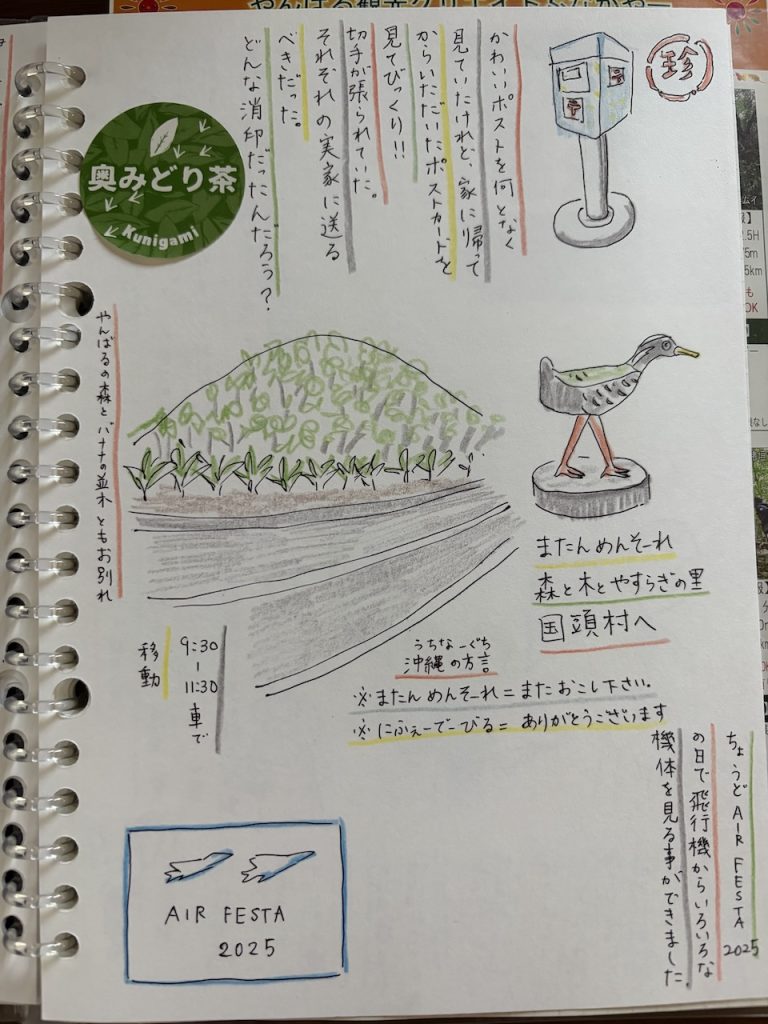 珍
かわいいポストを何となく
見ていたけれど、家に帰って
からいただいたポストカードを
見てびっくり!!
切手が張られていた。
それぞれの実家に送る
べきだった。
どんな消印だったんだろう?
奥みどり茶
Kunigami
やんばるの森とバナナの並木ともお別れ
またんめんそーれ
森と木とやすらぎの里
国頭村へ
うちなーぐち
沖縄の方言
※またんめんそーれ=またおこし下さい。
※にふぇーでーびる=ありがとうございます
9:30
-
11:30
車で
移動
ちょうどAIR FESTA 2025
の日で飛行機からいろいろな
機体を見る事ができました。
AIR FESTA
2025